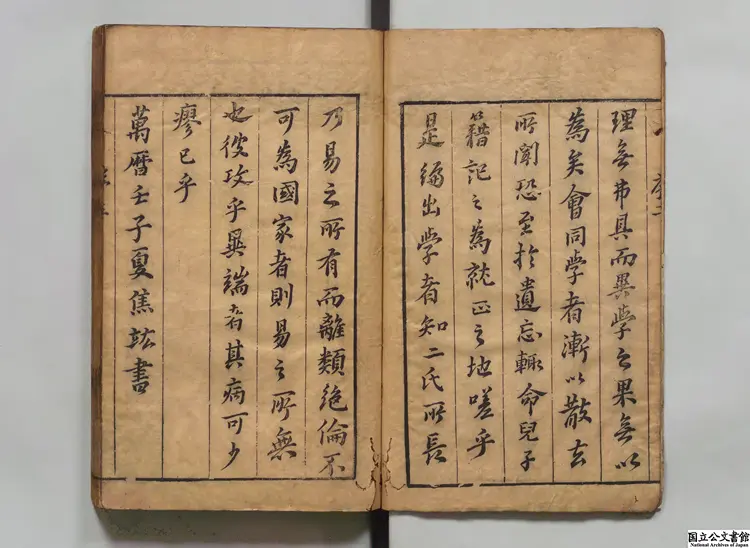 理無弗具而異學之果無以
為矣會同學者漸以散去
所聞恐至於遺忘輒命兒子
籍記之為就正之地嗟乎
是編出學者知二氏所長
乃易之所有而離類絶倫不
可為國家者則易之所無
也彼攻乎異端者其病可少
瘳已乎
萬曆壬子夏焦竑書
国立公文書館
National Archives of Japan